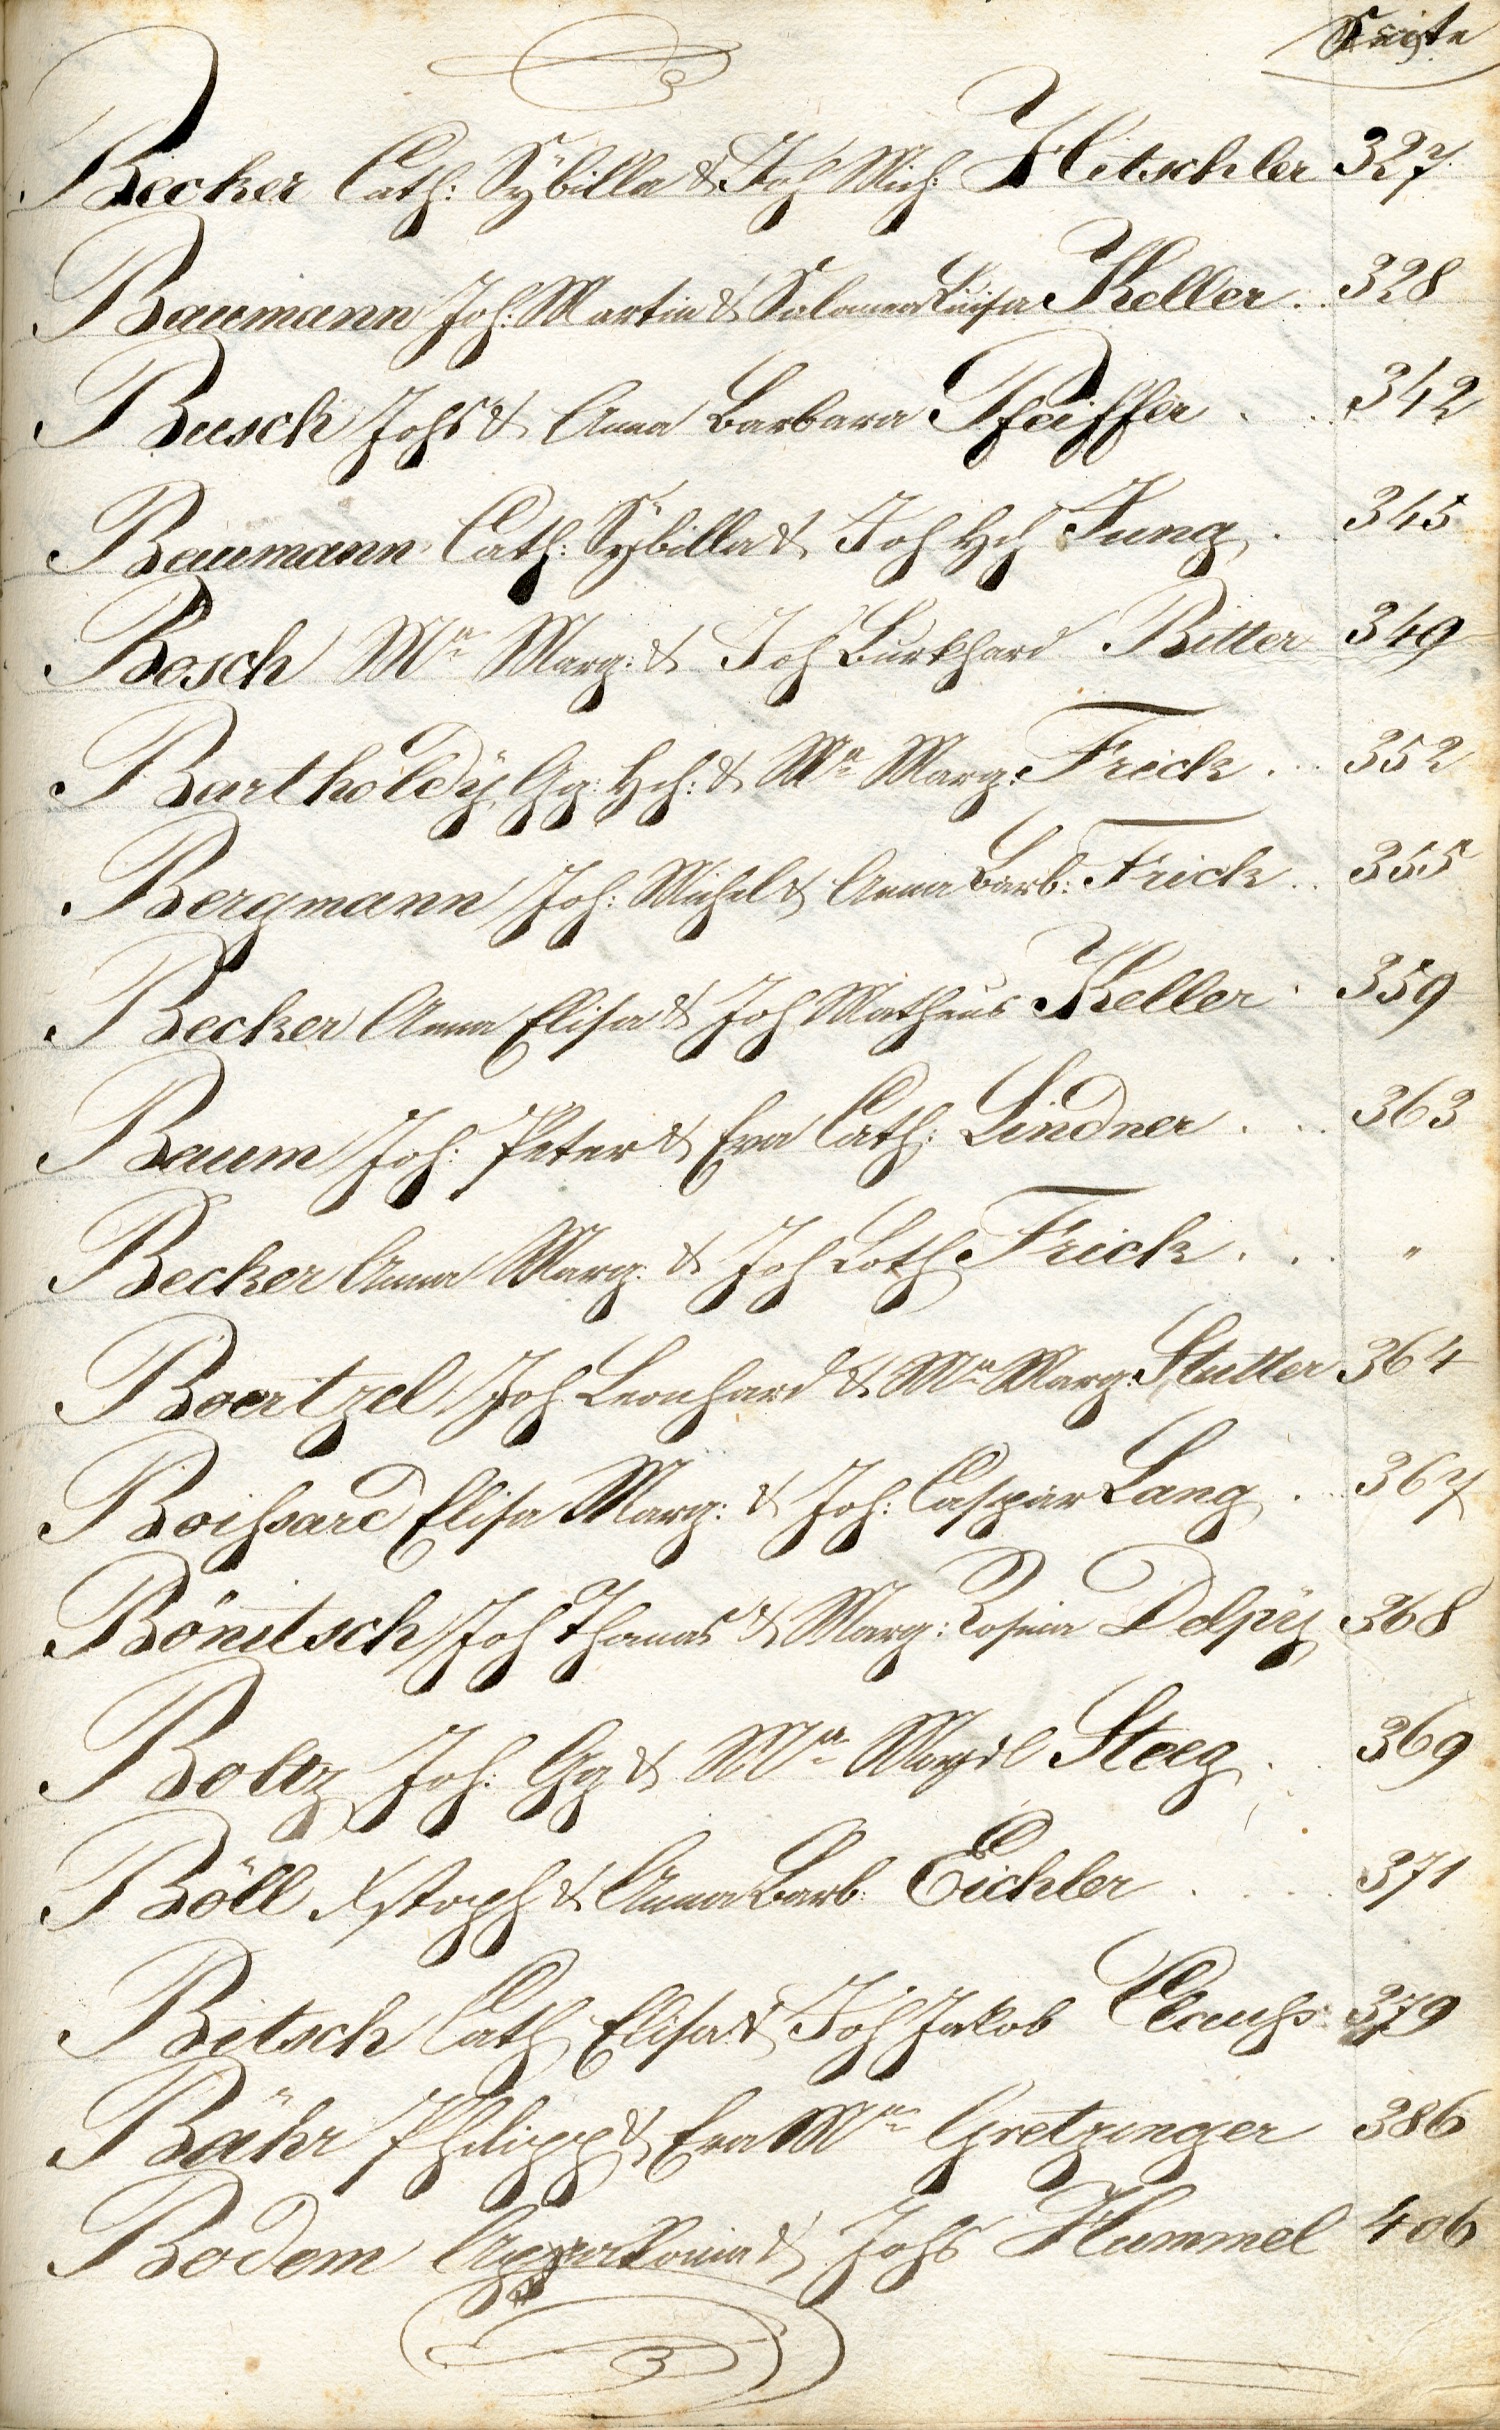 Seite
Becker Cath: Sÿbilla & Joh Mich: Hitschler 327
Baumann Joh: Martin & Salomea Luisa Keller . . 328
Busch Johs & Anna Barbara Pfeiffer . . 342
Baumann Cath: Sÿbilla & Joh Hch Jung . 345
Bosch Mª Marg: & Joh Burkhard Ritter 349
Bartholdÿ Gg: Hch: & Mª Marg: Frick . . . 352
Bergmann Joh: Michel & Anna Barb: Frick . . 355
Becker Anna Elisa & Joh Matheus Keller . 359
Baum Joh: Peter & Eva Cath: Lindner . . . 363
Becker Anna Marg: & Joh Loth Frick . . . "
Boertzel Joh Leonhard & Mª Marg: Stutter 364
Boißard Elisa Marg: & Joh: Caspar Lang . . . 367
Bönitsch Joh Thomas & Marg: Rosina Delpÿ 368
Boltz Joh: Gg & Mª Magdl Steeg . . . 369
Böll Xstoph & Anna Barb: Eichler . . . . 371
Bitsch Cath Elisa & Joh Jakob Clauß 379
Bähr Philipp & Eva Mª Gretzinger 386
Bodem & Johs Hummel 406